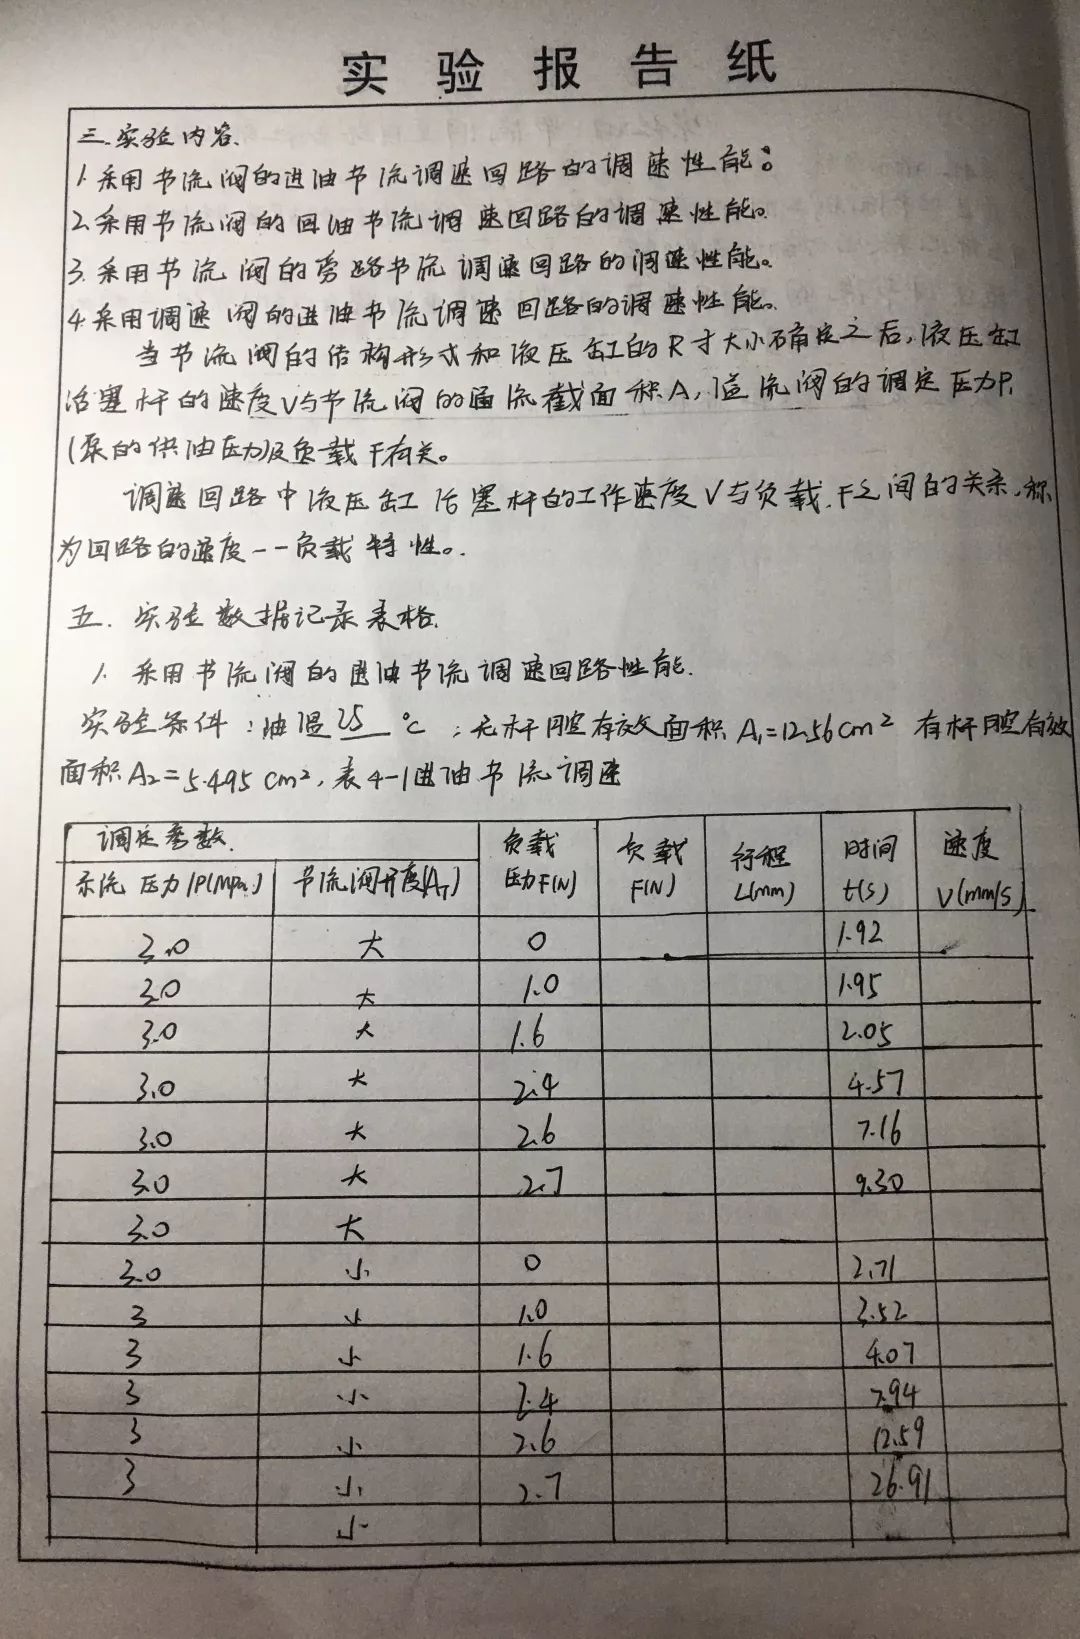 实验报告纸
三.实验内容.
1.采用节流阀的进油节流调速回路的调速性能;
2.采用节流阀的回油节流调速回路的调速性能。
3.采用节流阀的旁路节流调速回路的调速性能。
4.采用调速阀的进油节流调速回路的调速性能.
当节流阀的结构形式和液压缸的尺寸大小确定之后,液压缸
活塞杆的速度V与节流阀的通流截面积A,溢流阀的调定压力P,
(泵的供油压力)及负载F有关。
调速回路中液压缸活塞杆的工作速度V与负载F之间的关系,称
为回路的速度--负载特性。
五.实验数据记录表格.
1.采用节流阀的进油节流调速回路性能.
实验条件:油温25℃;无杆腔有效面积A₁=12.56cm² 有杆腔有效
面积A₂=5.495cm²,表4-1进油节流调速
调定参数 负载压力F(N) 负载F(N) 行程L(mm) 时间t(s) 速度V(mm/s)
系统压力P(Mpa) 节流阀开度(A_T)
3.0 大 0 1.92
3.0 大 1.0 1.95
3.0 大 1.6 2.05
3.0 大 2.4 4.57
3.0 大 2.6 7.16
3.0 大 2.7 9.30
3.0 大
3.0 小 0 2.71
3 小 1.0 3.52
3 小 1.6 4.07
3 小 2.4 7.94
3 小 2.6 12.59
3 小 2.7 26.91
小